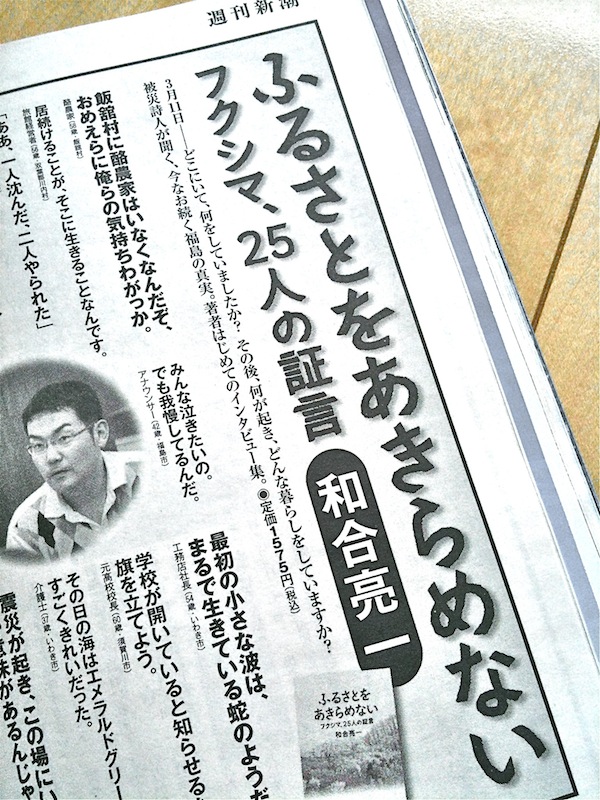 週刊新潮
ふるさとをあきらめない
フクシマ、25人の証言
和合亮一
3月11日――どこにいて、何をしていましたか? その後、何が起き、どんな暮らしをしていますか?
被災詩人が聞く、今なお続く福島の真実。著者はじめてのインタビュー集。◉定価1575円(税込)
飯舘村に酪農家はいなくなんだぞ、
おめえらに俺らの気持ちわがっか。
酪農家(58歳・飯舘村)
居続けることが、そこに生きることなんです。
旅館経営者(56歳・双葉郡川内村)
「ああ、一人沈んだ、二人やられた」
みんな泣きたいの。
でも我慢してるんだ。
アナウンサー(42歳・福島市)
最初の小さな波は、
まるで生きている蛇のようだ
工務店社長(54歳・いわき市)
学校が開いていると知らせる
旗を立てよう。
元高校校長(60歳・須賀川市)
その日の海はエメラルドグリー
すごくきれいだった。
介護士(37歳・いわき市)
震災が起き、この場にい
意味があるんじゃ
ふるさとを
あきらめない
フクシマ、25人の証言
和合亮一